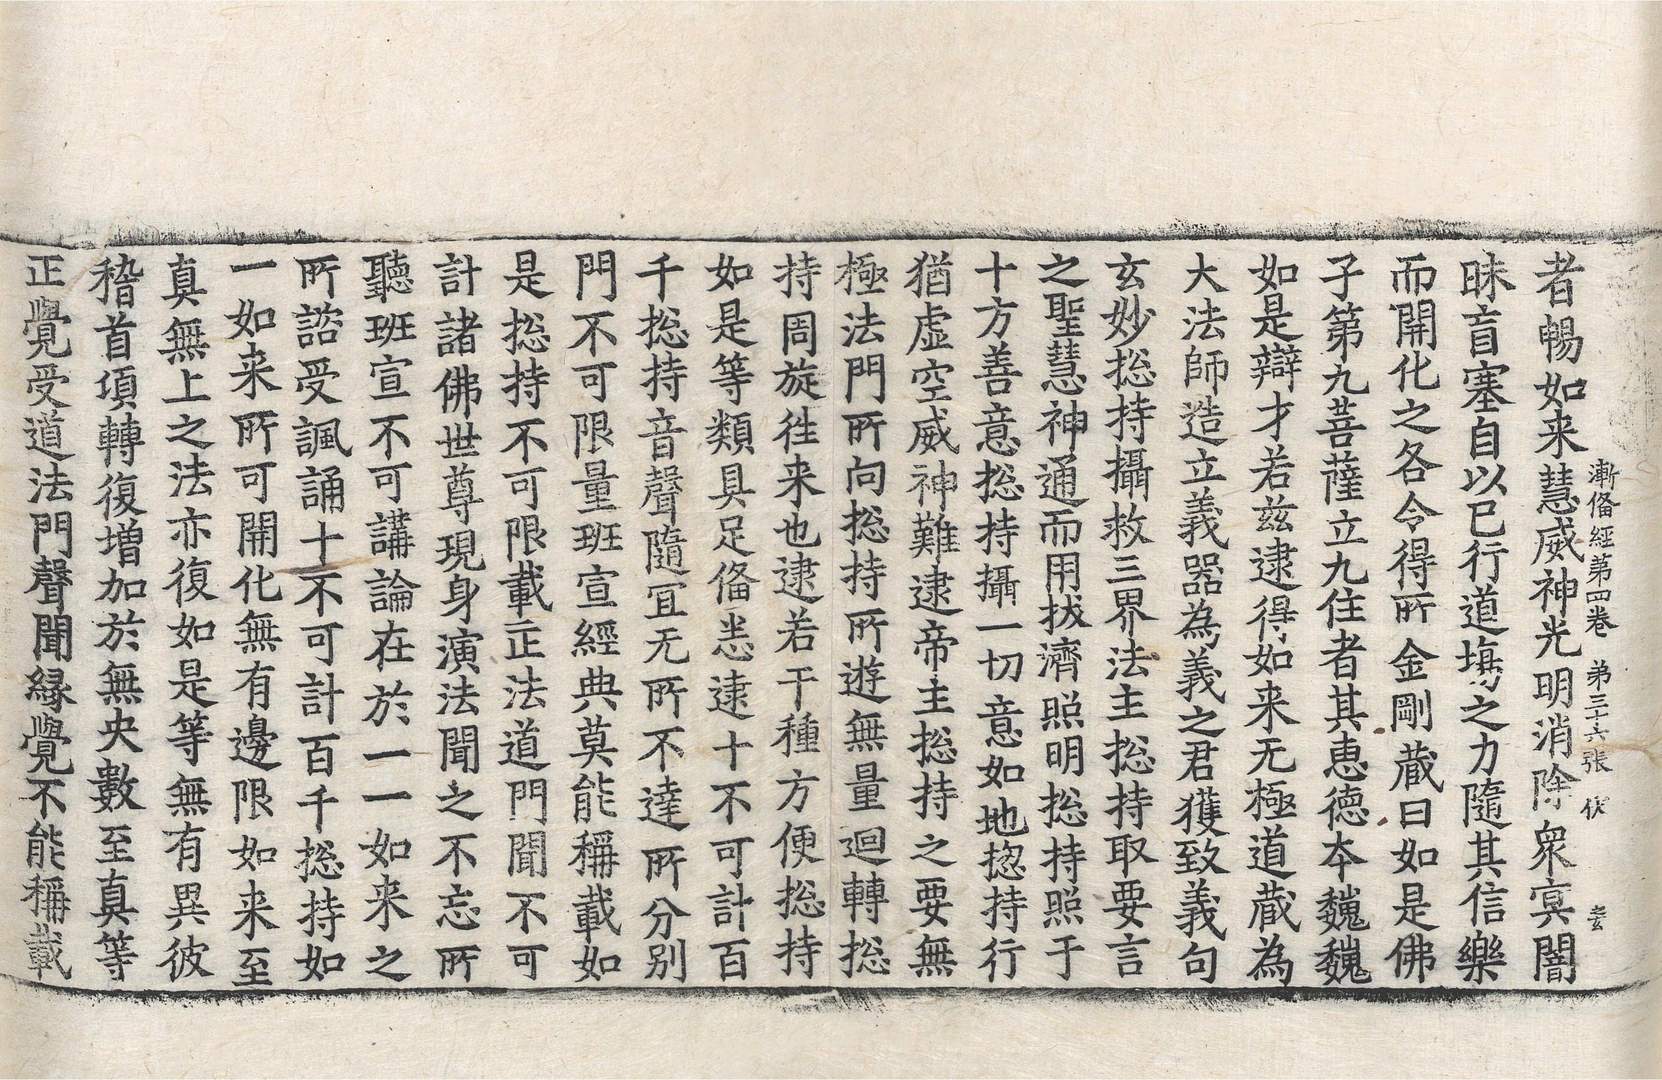 漸俻經第四卷　第三十六張　伏
者暢如来慧威神光明消除衆㝠闇
昧盲塞自以已行道塲之力隨其信樂
而開化之各令得所金剛蔵曰如是佛
子第九菩薩立九住者其恵徳夲巍巍
如是辯才若兹逮得如来无極道蔵為
大法師造立義器為義之君獲致義句
玄妙捴持攝救三界法主捴持取要言
之聖慧神通而用拔濟照明捴持照于
十方善意捴持攝一切意如地揔持行
猶虛空威神難逮帝主捴持之要無
極法門所向捴持所遊無量迴轉捴
持周旋徃来也逮若干種方便捴持
如是等類具足俻悉逮十不可計百
千捴持音聲隨冝无所不達所分别
門不可限量班宣經典莫能稱載如
是捴持不可限載正法道門聞不可
計諸佛世尊現身演法聞之不忘所
聽班宣不可講論在於一一如来之
所諮受諷誦十不可計百千捴持如
一如来所可開化無有邊限如来至
真無上之法亦復如是等無有異彼
稽首項轉復増加於無央數至真等
正覺受道法門聲聞縁覺不能稱載